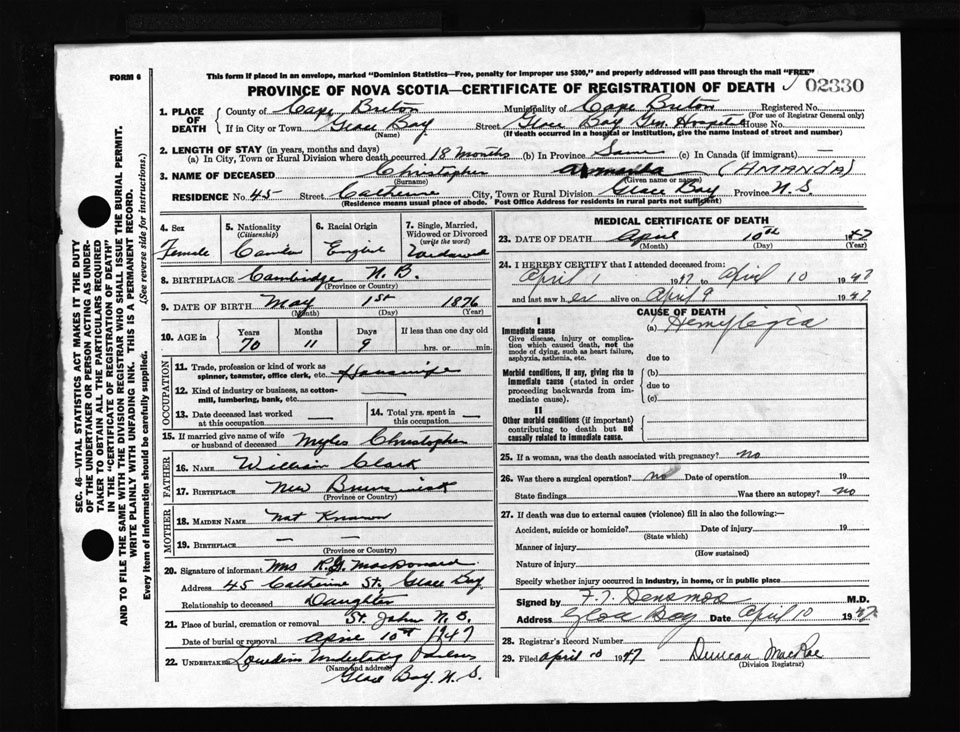 FORM 6
This form if placed in an envelope, marked "Dominion Statistics—Free, penalty for improper use $300," and properly addressed will pass through the mail "FREE"
PROVINCE OF NOVA SCOTIA—CERTIFICATE OF REGISTRATION OF DEATH 02330
1. PLACE OF DEATH
County of Cape Breton Municipality of Cape Breton Registered No.
(For use of Registrar General only)
If in City or Town Glace Bay Street Glace Bay Gen. Hospital House No.
(Name) (If death occurred in a hospital or institution, give the name instead of street and number)
2. LENGTH OF STAY (in years, months and days)
(a) In City, Town or Rural Division where death occurred 18 months (b) In Province Same (c) In Canada (if immigrant) —
3. NAME OF DECEASED Christopher (AMANDA)
(Surname) (Given name or names)
RESIDENCE No. 45 Street Catherine City, Town or Rural Division Glace Bay Province N.S.
(Residence means usual place of abode. Post Office Address for residents in rural parts not sufficient)
SEC. 46—VITAL STATISTICS ACT MAKES IT THE DUTY
OF THE UNDERTAKER OR PERSON ACTING AS UNDER-
TAKER TO OBTAIN ALL THE PARTICULARS REQUIRED
IN THE "CERTIFICATE OF REGISTRATION OF DEATH"
AND TO FILE THE SAME WITH THE DIVISION REGISTRAR WHO SHALL ISSUE THE BURIAL PERMIT.
WRITE PLAINLY WITH UNFADING INK. THIS IS A PERMANENT RECORD.
Every item of information should be carefully supplied. (See reverse side for instructions.)
4. Sex 5. Nationality (Citizenship) 6. Racial Origin 7. Single, Married, Widowed or Divorced (write the word)
Female
8. BIRTHPLACE Cambridge N.B.
(Province or Country)
9. DATE OF BIRTH May 1st 1876
(Month) (Day) (Year)
10. AGE in Years Months Days If less than one day old
70 11 9 hrs. or min.
OCCUPATION
11. Trade, profession or kind of work as spinner, teamster, office clerk, etc. Housewife
12. Kind of industry or business, as cotton-mill, lumbering, bank, etc. —
13. Date deceased last worked at this occupation — 14. Total yrs. spent in this occupation —
15. If married give name of wife or husband of deceased Myles Christopher
FATHER
16. NAME William Clark
17. BIRTHPLACE New Brunswick
(Province or Country)
MOTHER
18. MAIDEN NAME not Known
19. BIRTHPLACE — —
(Province or Country)
20. Signature of informant Mrs R.G. MacDonald
Address 45 Catherine St, Glace Bay
Relationship to deceased Daughter
21. Place of burial, cremation or removal St. John N.B.
Date of burial or removal April 10th 1947
22. UNDERTAKER
(Name and address)
Glace Bay. N.S.
MEDICAL CERTIFICATE OF DEATH
23. DATE OF DEATH April 10th 1947
(Month) (Day) (Year)
24. I HEREBY CERTIFY that I attended deceased from:
April 1 1947 to April 10 1947
and last saw her alive on April 9 1947
CAUSE OF DEATH
I
Immediate cause
Give disease, injury or complication which caused death, not the mode of dying, such as heart failure, asphyxia, asthenia, etc.
(a) Hemiplegia
due to
Morbid conditions, if any, giving rise to immediate cause (stated in order proceeding backwards from immediate cause).
(b)
due to
(c)
II
Other morbid conditions (if important) contributing to death but not causally related to immediate cause.
25. If a woman, was the death associated with pregnancy? no
26. Was there a surgical operation? no Date of operation 19
State findings Was there an autopsy? no
27. If death was due to external causes (violence) fill in also the following:—
Accident, suicide or homicide? Date of injury 19
(State which)
Manner of injury
(How sustained)
Nature of injury
Specify whether injury occurred in industry, in home, or in public place
Signed by M.D.
Address Date April 10 1947
28. Registrar's Record Number
29. Filed April 10 1947 Duncan MacRae
(Division Registrar)